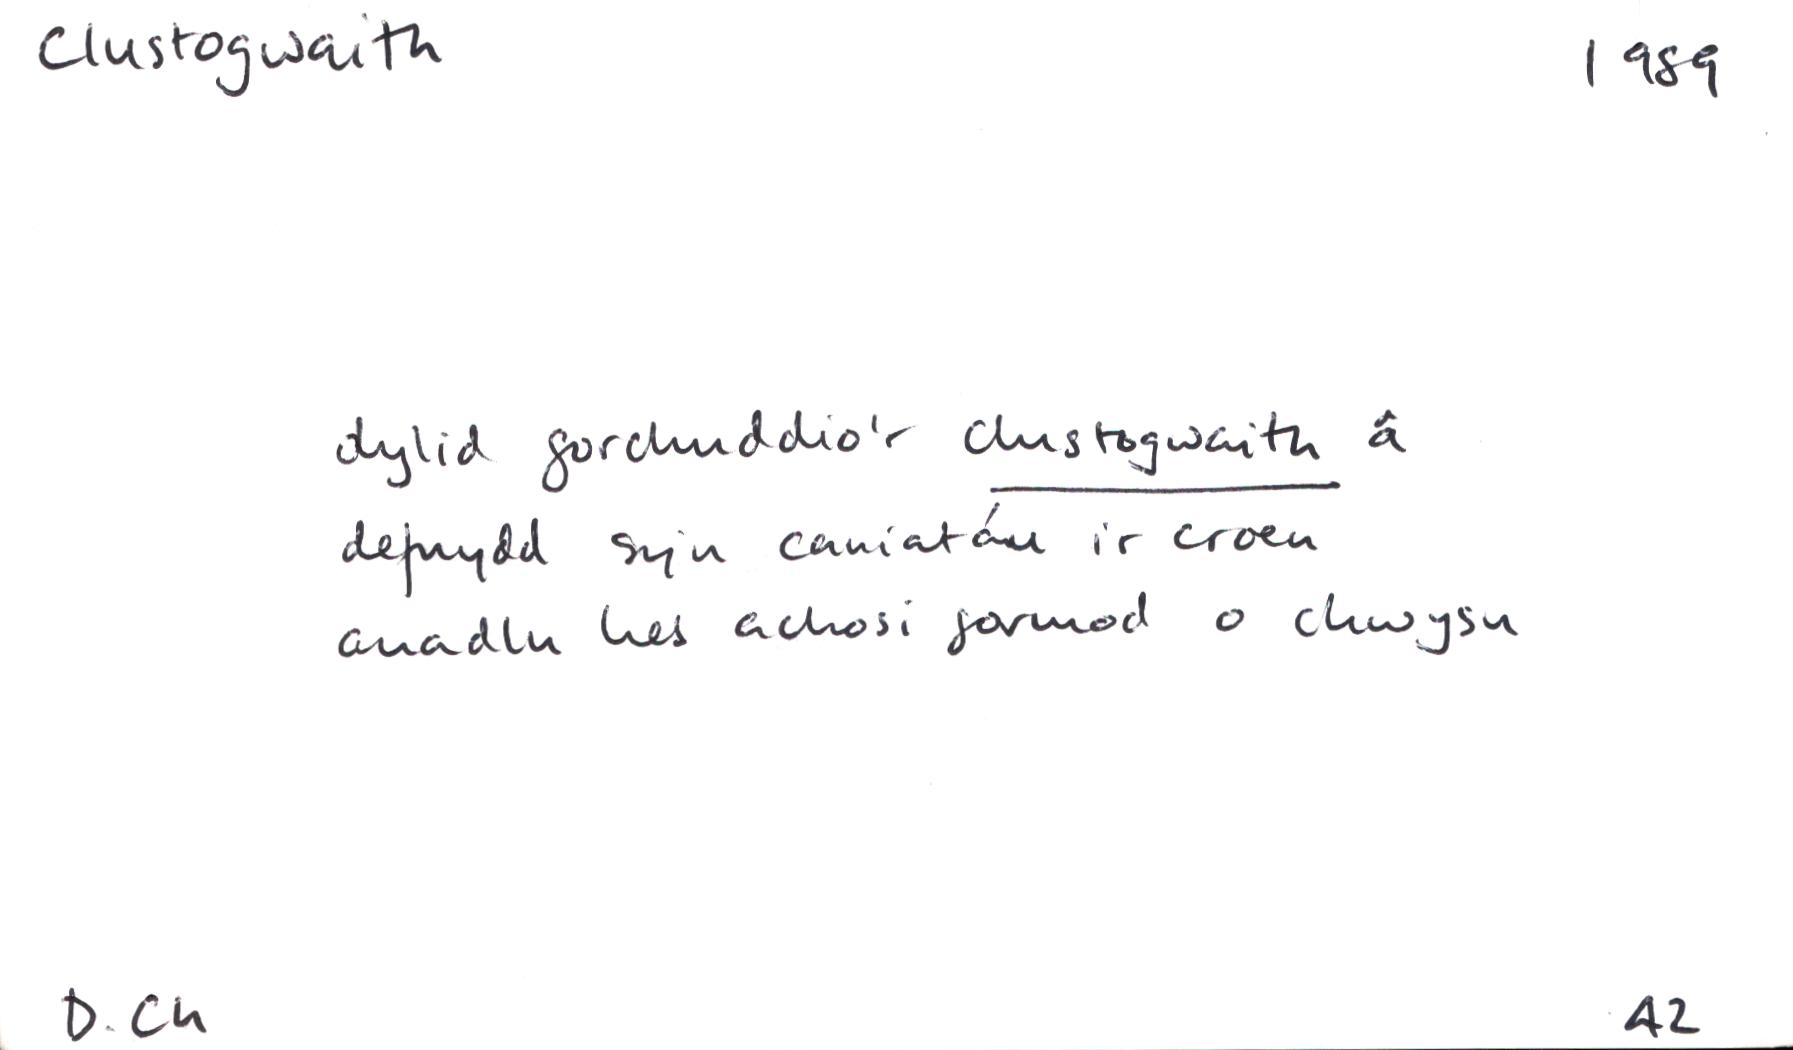 Clustogwaith
1989
dylid gorchuddio'r clustogwaith â
defnydd syn caniatáu ir croen
anadlu heb achosi gormod o chwysu
D. Ch
42